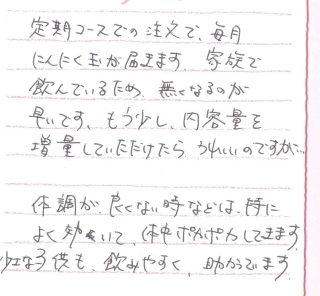 定期コースでの注文で、毎月
にんにく玉が届きます。家族で
飲んでいるため、無くなるのが
早いです。もう少し、内容量を
増量していただけたら、うれしいのですが…
体調が良くない時などは、特に
よく効いて、体中ポカポカしてきます。
子供も、飲みやすく、助かっています。